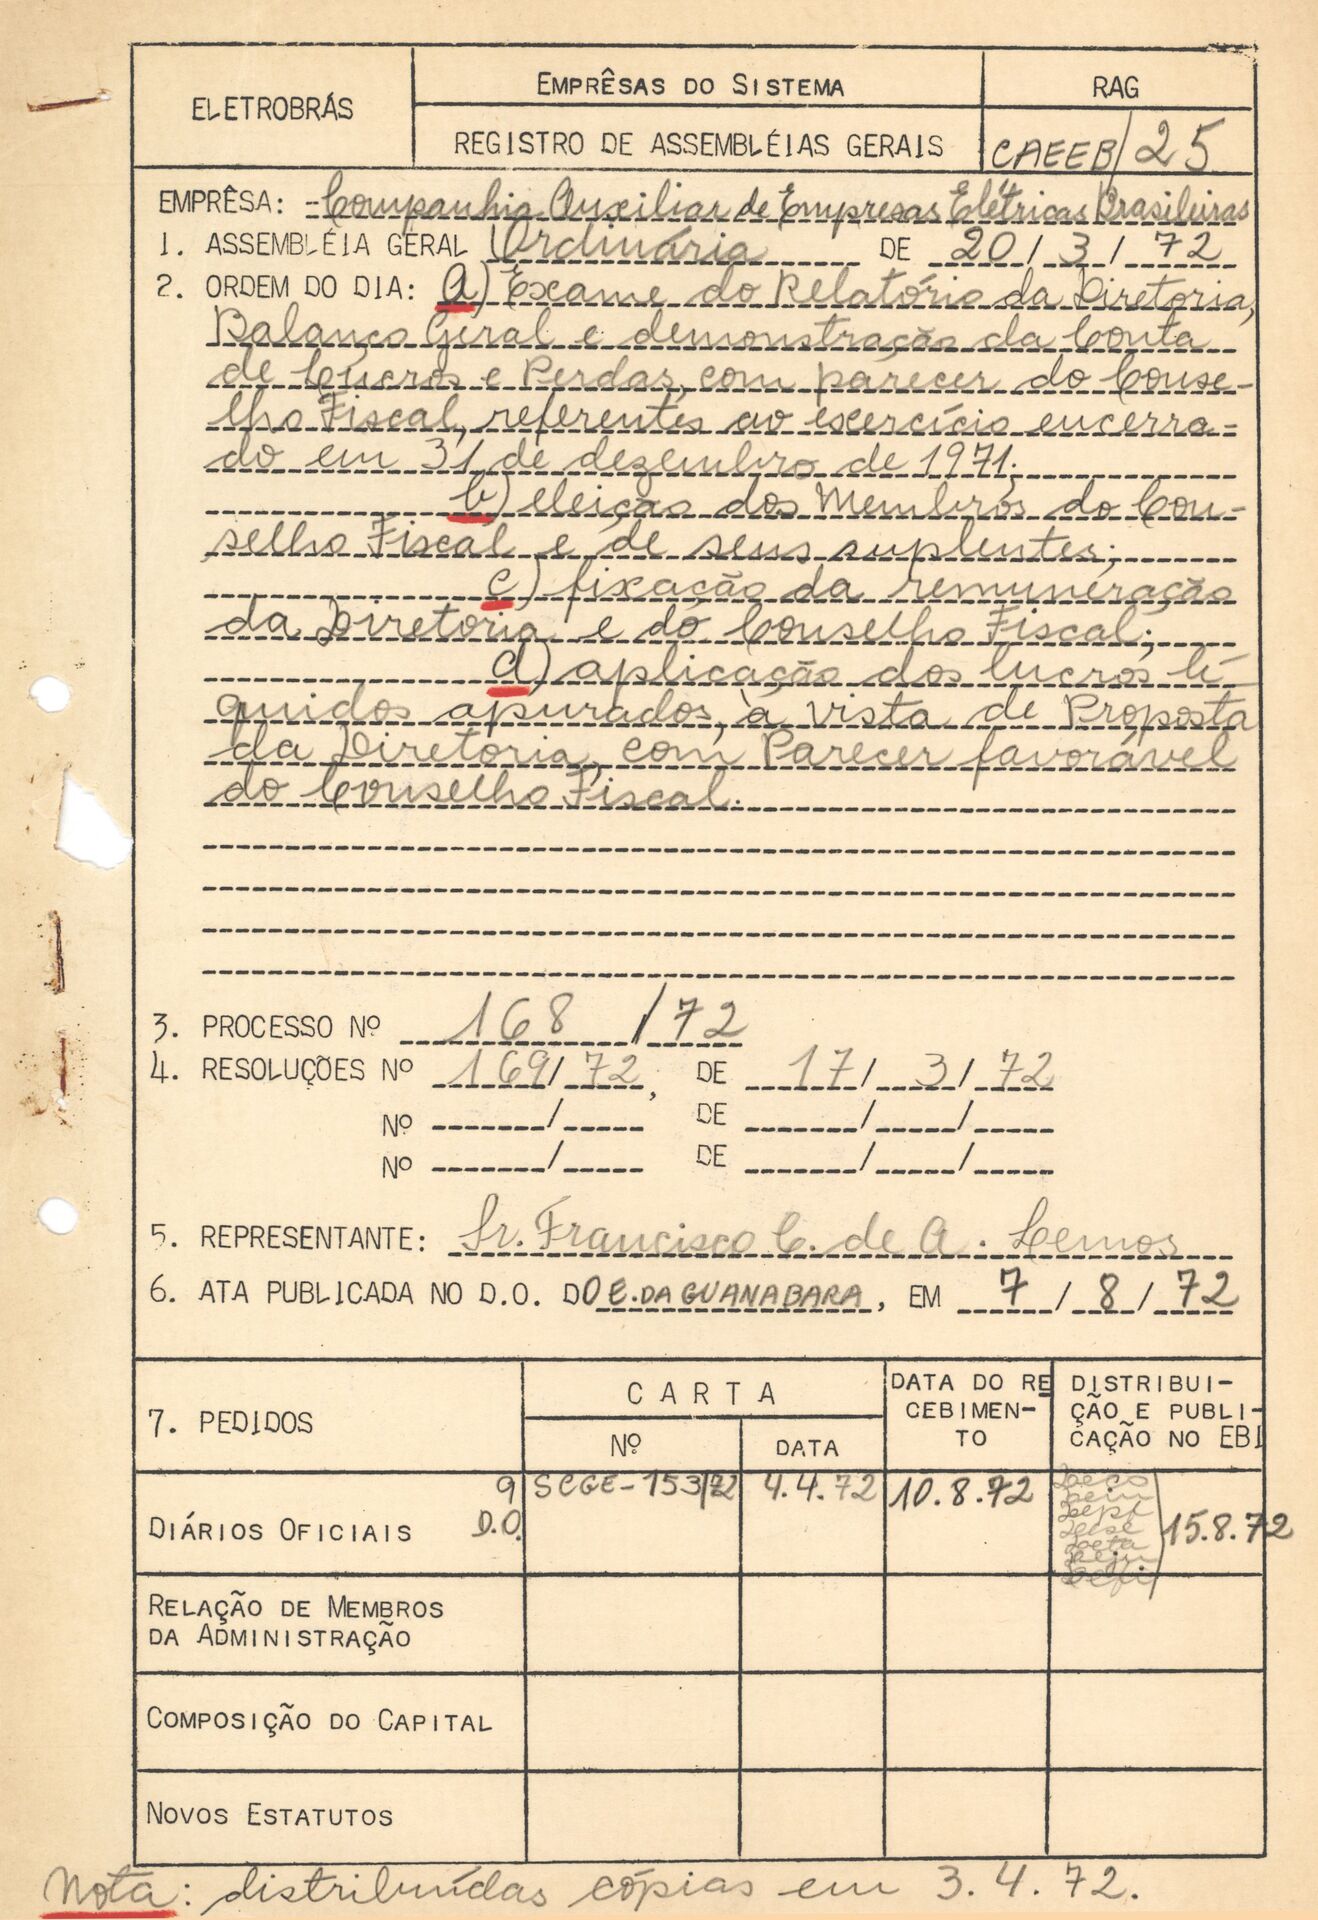 ELETROBRÁS
EMPRÊSAS DO SISTEMA
RAG
REGISTRO DE ASSEMBLÉIAS GERAIS
CAEEB/25
EMPRÊSA: -Companhia Auxiliar de Empresas Elétricas Brasileiras
1. ASSEMBLÉIA GERAL Ordinária DE 20/3/72
2. ORDEM DO DIA: a) Exame do Relatório da Diretoria,
Balanço Geral e demonstração da Conta
de Lucros e Perdas, com parecer do Conse-
lho Fiscal, referentes ao exercício encerra-
do em 31 de dezembro de 1971;
b) eleição dos Membros do Con-
selho Fiscal e de seus suplentes;
c) fixação da remuneração
da Diretoria e do Conselho Fiscal;
d) aplicação dos lucros lí-
quidos apurados, à vista de Proposta
da Diretoria, com Parecer favorável
do Conselho Fiscal.
3. PROCESSO Nº 168/72
4. RESOLUÇÕES Nº 169/72, DE 17/3/72
Nº / DE / /
Nº / DE / /
5. REPRESENTANTE: Sr. Francisco C. de A. Lemos
6. ATA PUBLICADA NO D.O. DO E. DA GUANABARA, EM 7/8/72
7. PEDIDOS
CARTA
Nº
DATA
DATA DO RE
CEBIMEN-
TO
DISTRIBUI-
ÇÃO E PUBLI-
CAÇÃO NO EBI
DIÁRIOS OFICIAIS
9
D.O.
SCGE-153/72
4.4.72
10.8.72
15.8.72
RELAÇÃO DE MEMBROS
DA ADMINISTRAÇÃO
COMPOSIÇÃO DO CAPITAL
NOVOS ESTATUTOS
Nota: distribuídas cópias em 3.4.72.